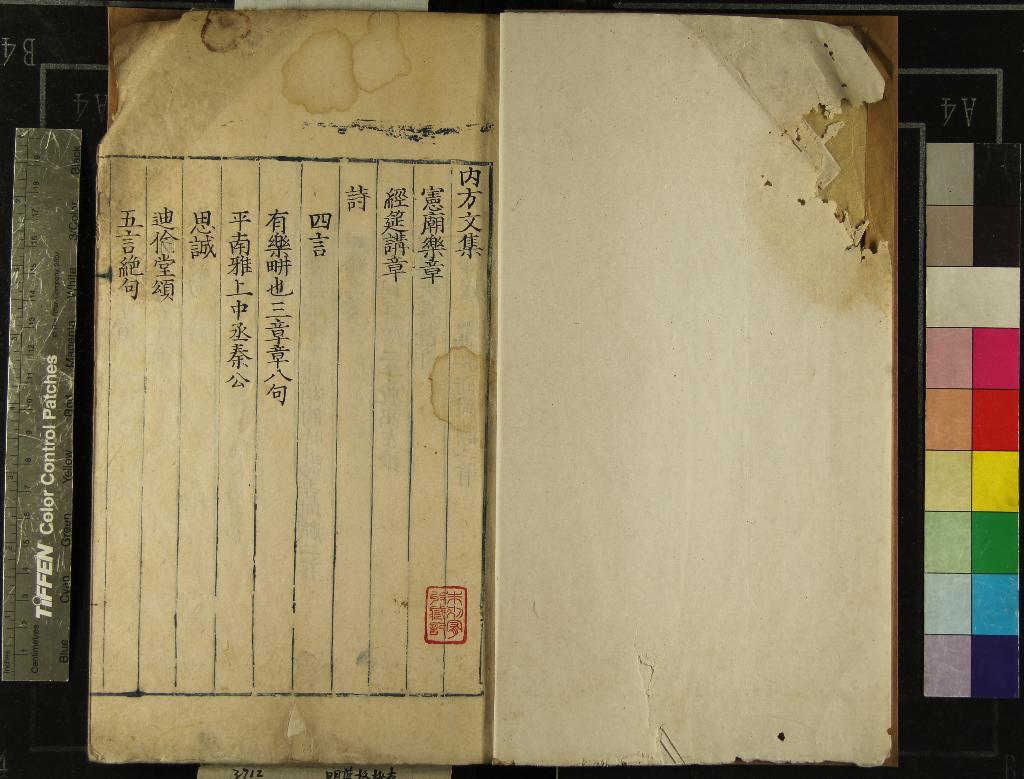 内方文集
憲廟樂章
經筵講章
詩
四言
有樂畊也三章章八句
平南雅上中丞秦公
思誠
迪倫堂頌
五言絶句
TIFFEN Color Control Patches
Centimetres
Inches
Blue
Cyan
Green
Yellow
Red
Magenta
White
3/Color
Black
B4
A4
A4
3712